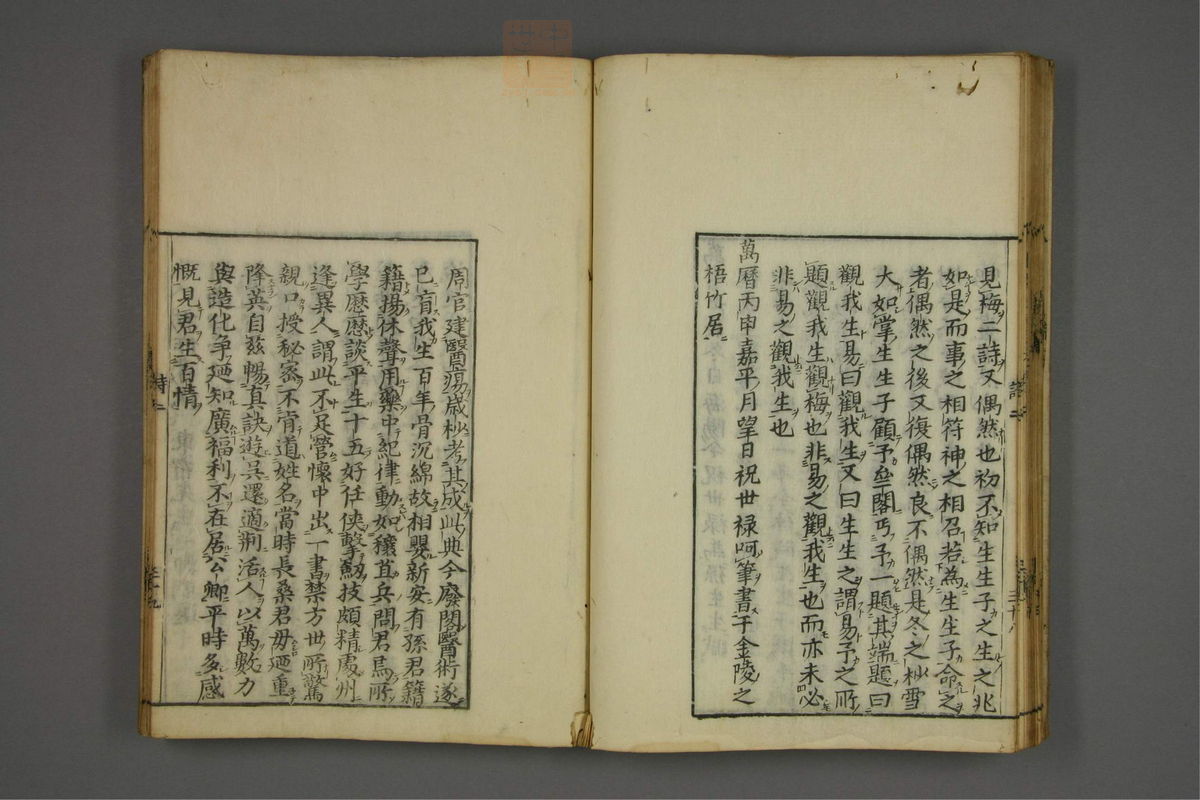 見梅二詩又偶然也初不知生生子之生之兆
如是而事之相符神之相召若為生生子命之
者偶然之後又復偶然良不偶然是冬之杪雪
大如掌生生子顧予壑閣丐予一題其端題曰
觀我生易曰觀我生又曰生生之謂易予之所
題觀我生觀梅也非易之觀我生也而亦未必
非易之觀我生也
萬曆丙申嘉平月望日祝世祿呵筆書于金陵之
梧竹居
周官建醫瘍歲杪考其成此典今廢閣醫術遂
已盲我生百年骨沉綿故相嬰新安有孫君籍
籍揚休聲用藥中紀律動如穰苴兵問君焉所
學歷歷談平生十五好任俠擊劒技頗精處州
逢異人謂此不足營懷中出一書禁方世所驚
親口授秘密不肯道姓名當時長桑君毋廼重
降英自茲暢真訣遊吳還適荊活人以萬數力
與造化爭廼知廣福利不在居公卿平時多感
慨見君生百情
詩二